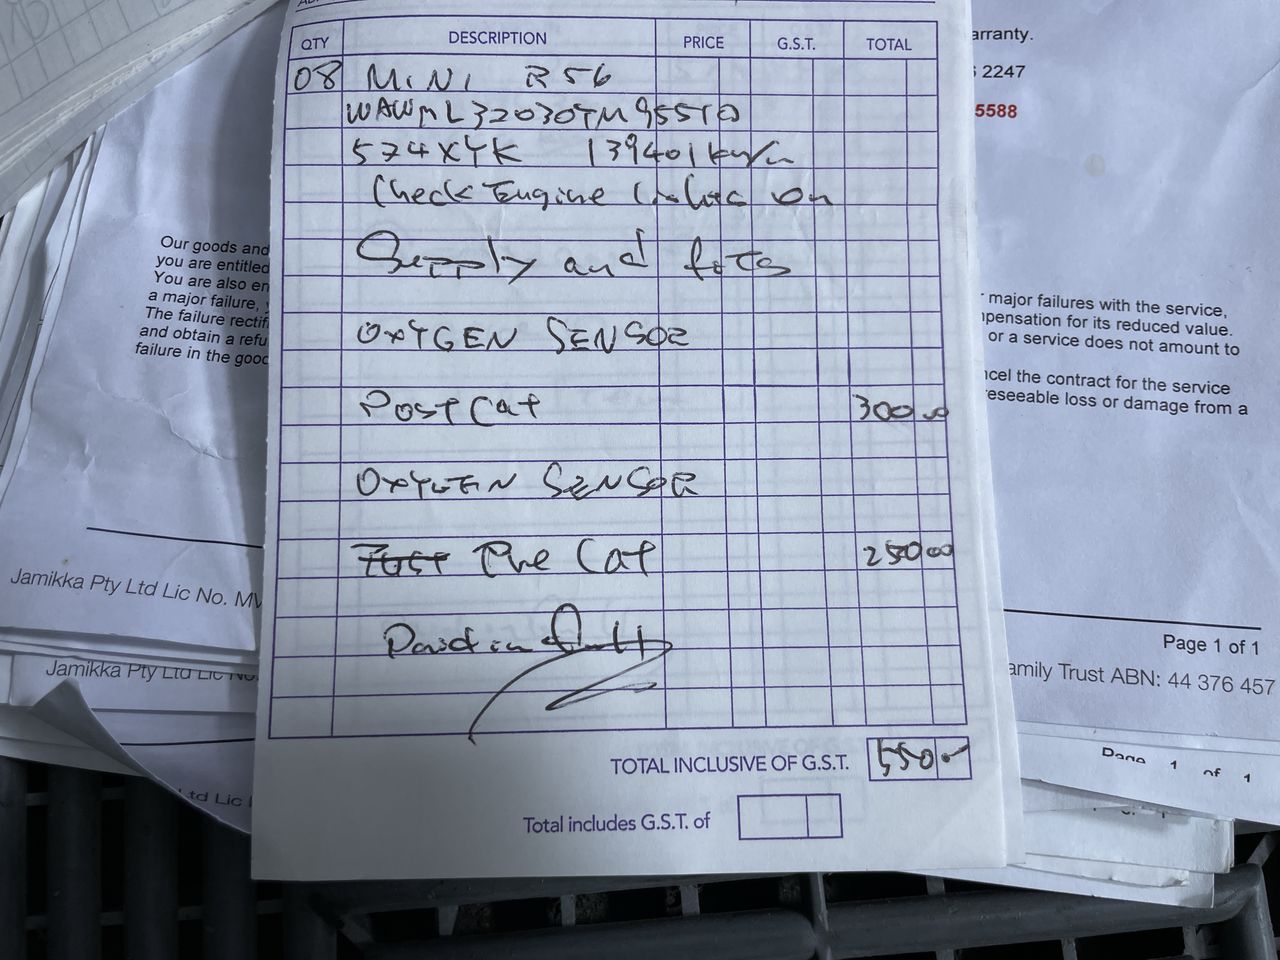 QTY DESCRIPTION PRICE G.S.T. TOTAL
08 MINI R56
574XYK 139401km/n
Check Engine on
Supply and fits
OXYGEN SENSOR
Post Cat 300 00
OXYGEN SENSOR
Pre Cat 250 00
Paid in full
TOTAL INCLUSIVE OF G.S.T. 550 -
Total includes G.S.T. of
Our goods and
you are entitled
You are also en
a major failure,
The failure rectifi
and obtain a refu
failure in the good
Jamikka Pty Ltd Lic No. MV
Jamikka Pty Ltd Lic No.
td Lic
arranty.
2247
5588
major failures with the service,
pensation for its reduced value.
or a service does not amount to
ncel the contract for the service
reseeable loss or damage from a
Page 1 of 1
amily Trust ABN: 44 376 457
Page 1 of 1